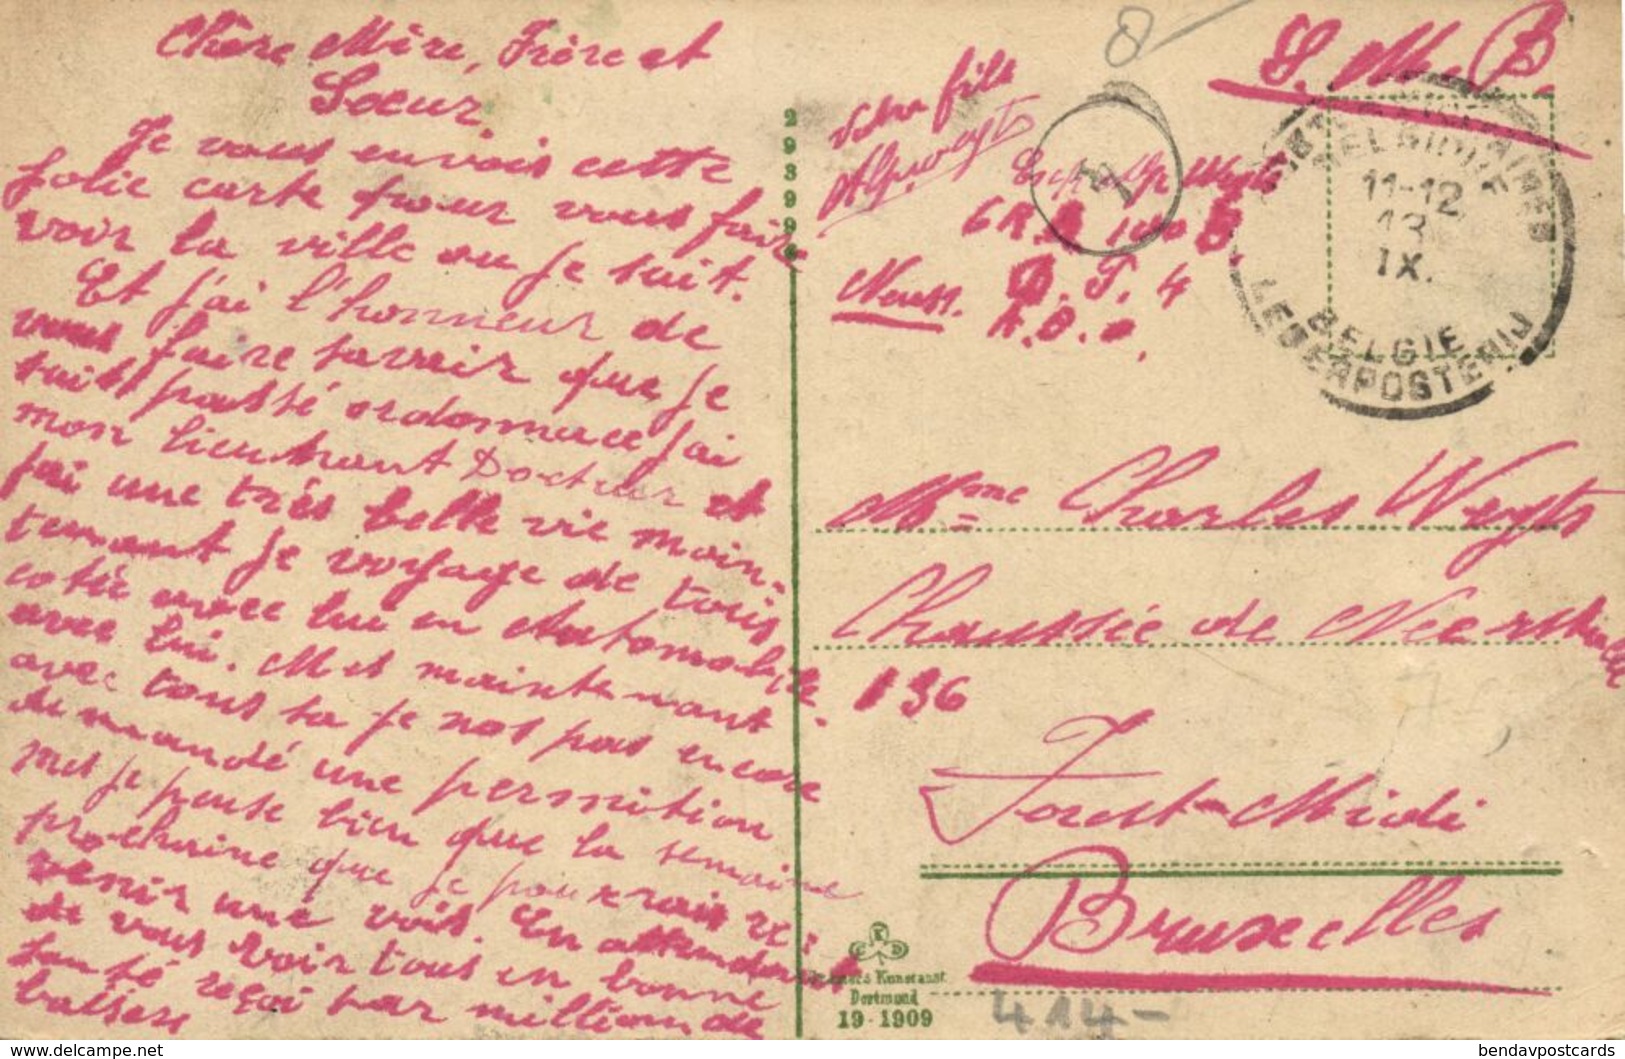 Chère Mère, Frère et
Soeur.
Je vous envois cette
jolie carte pour vous faire
voir la ville ou je suit.
Et j'ai l'honneur de
vous faire savoir que je
suit passé ordonnance j'ai
mon lieutnant Docteur et
j'ai une très belle vie main-
tenant je voyage de tous
coter avec lui en Automobile
avec lui. Mes maintenant
avec tous sa je nos pas encore
demandé une permition
mes je pense bien que la semaine
prochaine que je pourrais re-
venir une vois. En attendant
de vous revoir tous en bonne
santé reçoi par million de
baisers
29399
Votre fils
Alp. Weyts
S. M. B.
8
Exp Alp Weyts
6 R. 100 B.
D. T. 4
Neuss. A. B.
BELGIQUE
11-12
13
IX.
BELGIE
LEGERPOSTERIJ
Mme Charles Weyts
Chaussée de Neerstalle
136
Forest-Midi
Bruxelles
Kunstanst.
Dortmund
19-1909
414-
www.delcampe.net
bendavpostcards